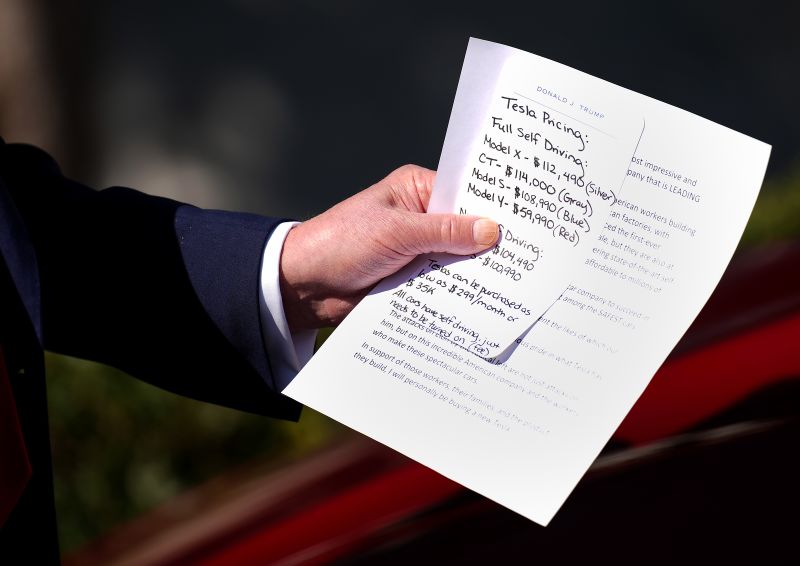 DONALD J. TRUMP
Tesla Pricing:
Full Self Driving:
Model X - $112,490 (Silver)
CT - $114,000 (Gray)
Model S - $108,990 (Blue)
Model Y - $59,990 (Red)
Driving:
$104,490
- $100,990
Teslas can be purchased as
low as $299/month or
$35K
All cars have self driving, just
needs to be turned on (fee)
ost impressive and
pany that is LEADING
erican workers building
an factories, with
ed the first-ever
ale, but they are also at
ering state of the art and
affordable to millions of
ar company to succeed in
among the SAFEST cars
ent the likes of which our
s pride in what Tesla has
The attacks on by the radical left are not just attacks on
him, but on this incredible American company and the workers
who make these spectacular cars.
In support of those workers, their families, and the product
they build, I will personally be buying a new Tesla